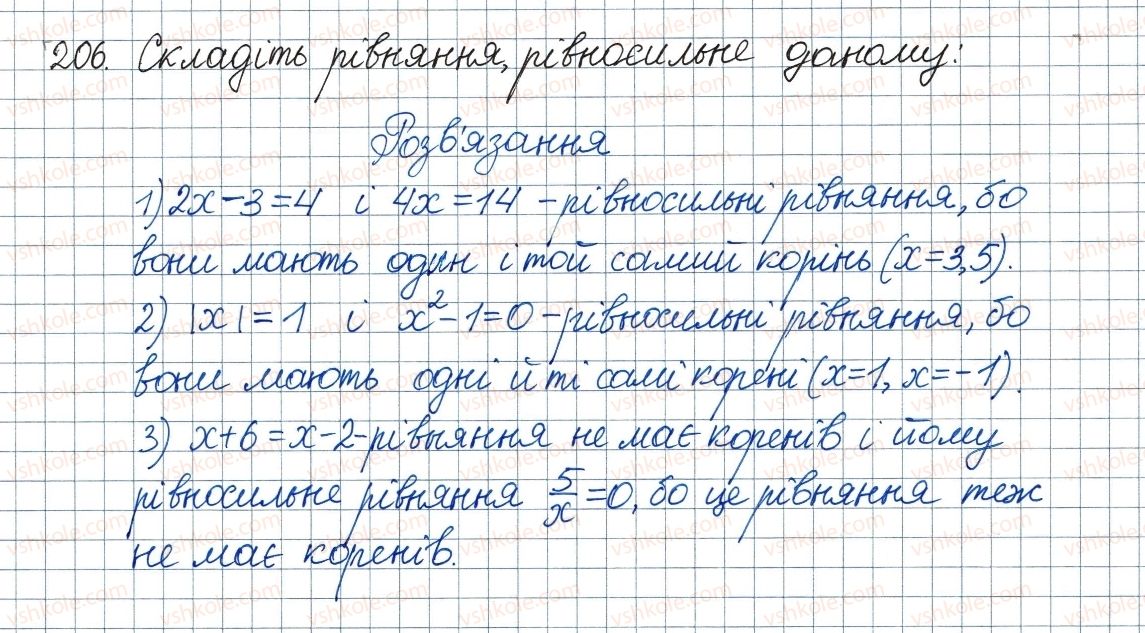 206. Складіть рівняння, рівносильне даному:
Розв'язання
1) 2x-3=4 і 4x=14 - рівносильні рівняння, бо
вони мають один і той самий корінь (x=3,5).
2) |x|=1 і x²-1=0 - рівносильні рівняння, бо
вони мають одні й ті самі корені (x=1, x=-1).
3) x+6=x-2 - рівняння не має коренів і йому
рівносильне рівняння 5/x=0, бо це рівняння теж
не має коренів.